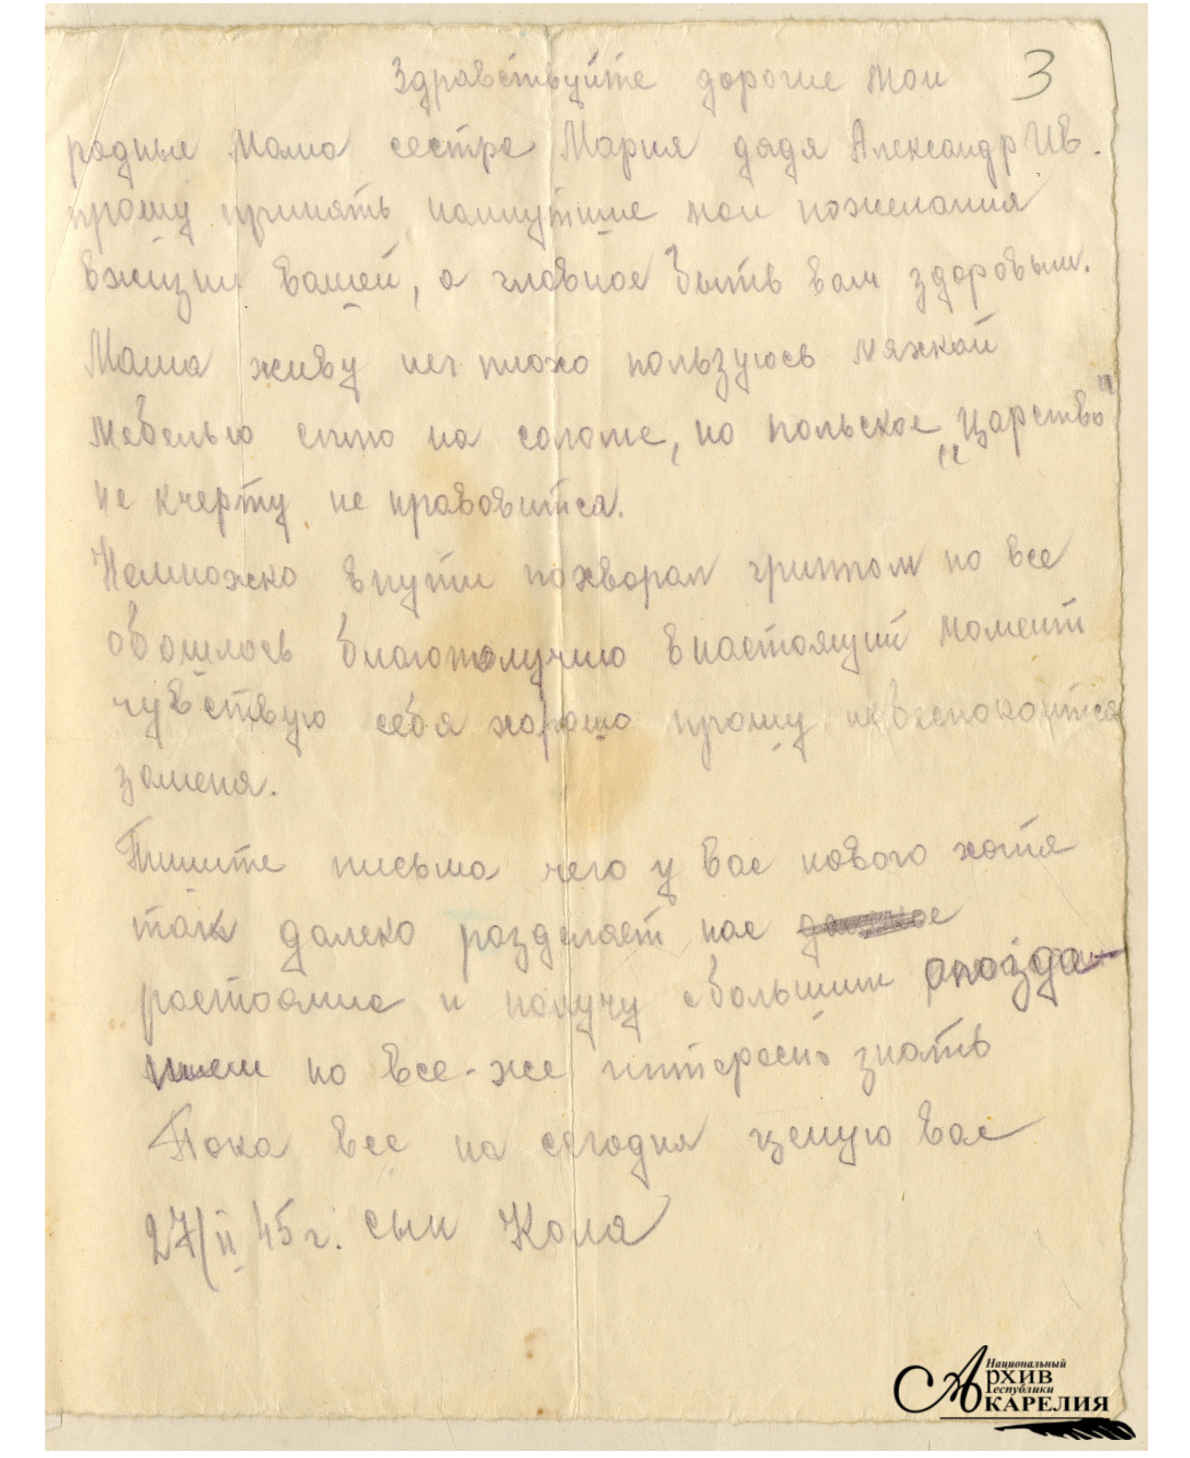 Здравствуйте дорогие мои 3
родные мама сестра Мария дядя Александр Ив.
прошу принять наилутшие мои пожелания
вжизни вашей, а главное быть вам здоровым.
Мама живу не плохо пользуюсь мяхкой
мебелью сплю на соломе, но польское „царство"
не кчерту не нравовится.
Немножко впути похворал гриппом но все
обошлось благополучно внастоящий момент
чувствую себя хорошо прошу не безпокоится
заменя.
Пишите письма чего у вас нового хотя
так далеко разделяет нас
ростояние и получу сбольшим опозда-
нием но все-же интересно знать
Пока все на сегодня целую вас
27/II 45 г. сын Коля
Национальный
Архив
Республики
Карелия